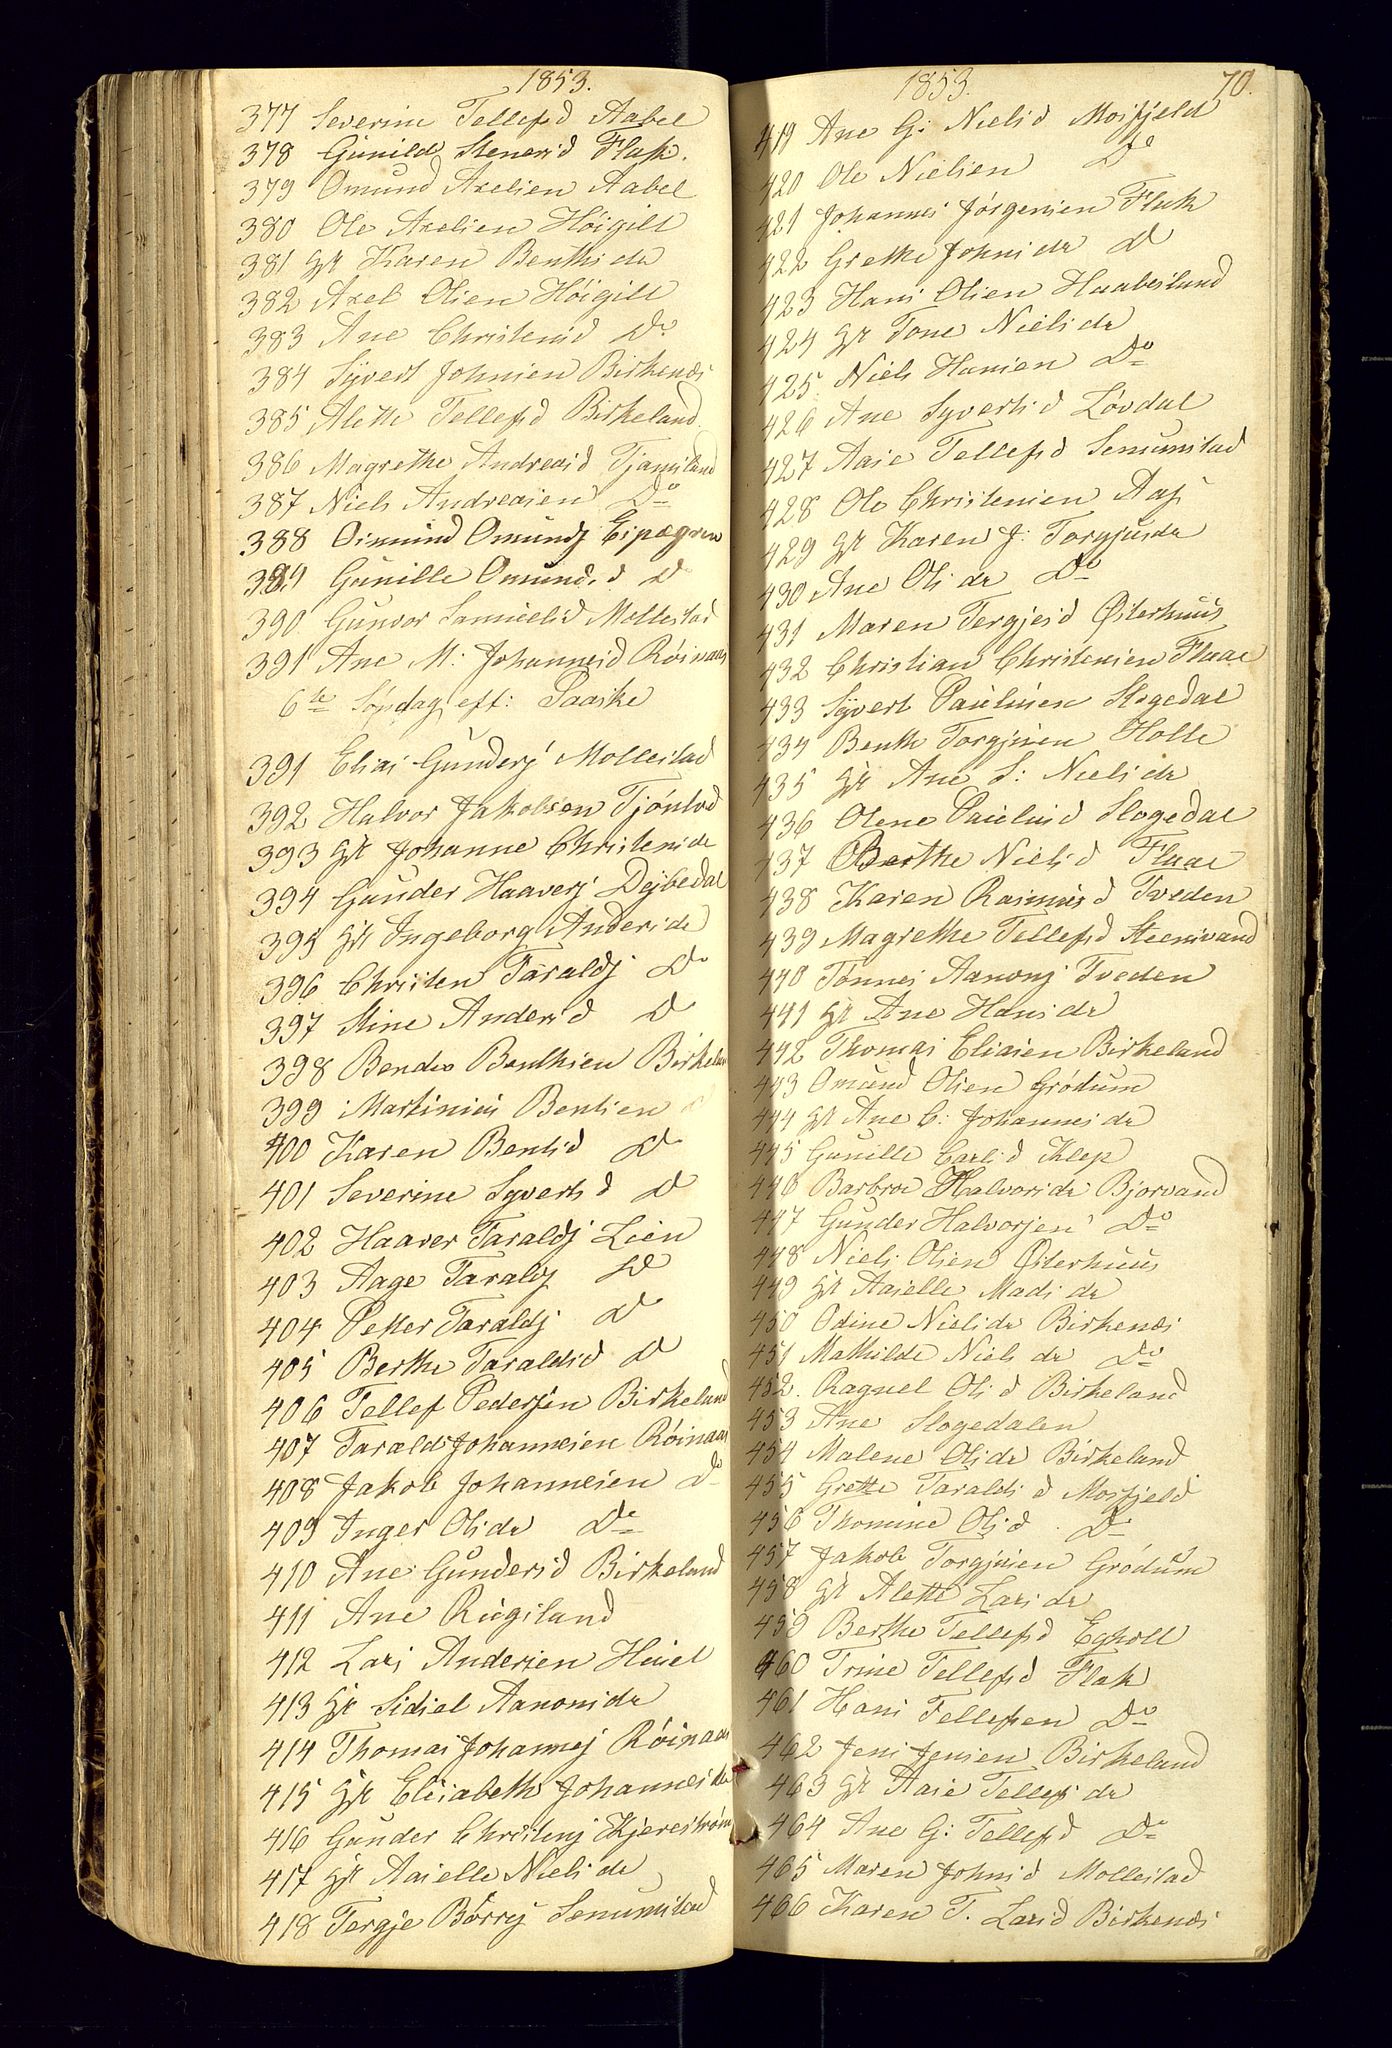 1853.
377 Severine Tellefsd Aabel
378 Gunild Stenersd Flak.
379 Omund Axelsen Aabel
380 Ole Axelsen Höigilt
381 Hr Karen Benthsdr
382 Axel Olsen Höigilt
383 Ane Christensd Do
384 Syvert Johnsen Birkenæs
385 Alette Tellefsd Birkeland
386 Magrethe Andreasd Tjamsland
387 Niels Andreasen Do
388 Osmund Omunds
389 Gunille Omundsd D
390 Gunvor Samuelsd Mollestad
391 Ane M: Johannesd Röinaas
6te Söndag eft: Paaske
391 Elias Gunders Mollestad
392 Halvor Jakobsen
393 Hr Johanne Christensdr
394 Gunder Haavers Dybedal
395 Hr Ingeborg Andersdr
396 Christen Taralds Do
397 Stine Andersd D
398 Bendix Benthsen Birkeland
399 Martinius Bentsen D
400 Karen Bentsd D
401 Severine Syvertsd D
402 Haaver Taralds Lien
403 Aage Taralds D
404 Petter Taralds D
405 Berthe Taraldsd D
406 Tellef Pedersen Birkeland
407 Tarald Johannesen Röinaas
408 Jakob Johannesen Do
409 Inger Olsdr Do
410 Ane Gundersd Birkeland
411 Ane Rugsland
412 Lars Andersen
413 Hr Sidsel Aanonsdr
414 Thomas Johannes Röinaas
415 Hr Elisabeth Johannesdr
416 Gunder Christens Kjereström
417 Hr Aasille Nielsdr
418 Tergje Börres Senumstad
1853. 70.
419 Ane G: Nielsd Mosfjeld
420 Ole Nielsen Do
421 Johannes Jörgensen Flak
422 Grethe Johnsdr D
423 Hans Olsen Haabesland
424 Hr Tone Nielsdr
425 Niels Hansen Do
426 Ane Syvertsd Lövdal
427 Aase Tellefsd Senumstad
428 Ole Christensen Aas
429 Hr Karen J: Torgjusdr
430 Ane Olsdr Do
431 Maren Tergjesd Østerhuus
432 Christian Christensen Flaae
433 Syvert Paulusen Slogedal
434 Benth Torgjusen Holte
435 Hr Ane S: Nielsdr
436 Olene Paulusd Slogedal
437 Berthe Nielsd Flaae
438 Karen Rasmusd Tveden
439 Magrethe Tellefsd Steensvand
440 Tönnes Aanons Tveden
441 Hr Ane Hansdr
442 Thomas Eliasen Birkeland
443 Omund Olsen Grödum
444 Hr Ane C: Johannesdr
445 Gunille Carlsd Klep
446 Barbroe Halvorsdr Bjorvand
447 Gunder Halvorsen Do
448 Niels Olsen Østerhuus
449 Hr Aasille Madsdr
450 Odine Nielsdr Birkenæs
451 Mathilde Nielsdr Do
452. Ragnel Olsd Birkeland
453 Ane Slogedalen
454 Malene Olsdr Birkeland
455 Grette Taraldsd Mosfjeld
456 Thomine Olsd Do
457 Jakob Torgjusen Grödum
458 Hr Alette Larsdr
459 Berthe Tellefsd Egholt
460 Trine Tellefsd Flak
461 Hans Tellefsen Do
462 Jens Jensen Birkeland
463 Hr Aase Tellefsdr
464 Ane G: Tellefsd Do
465 Maren Johnsd Mollestad
466 Karen T. Larsd Birkenæs